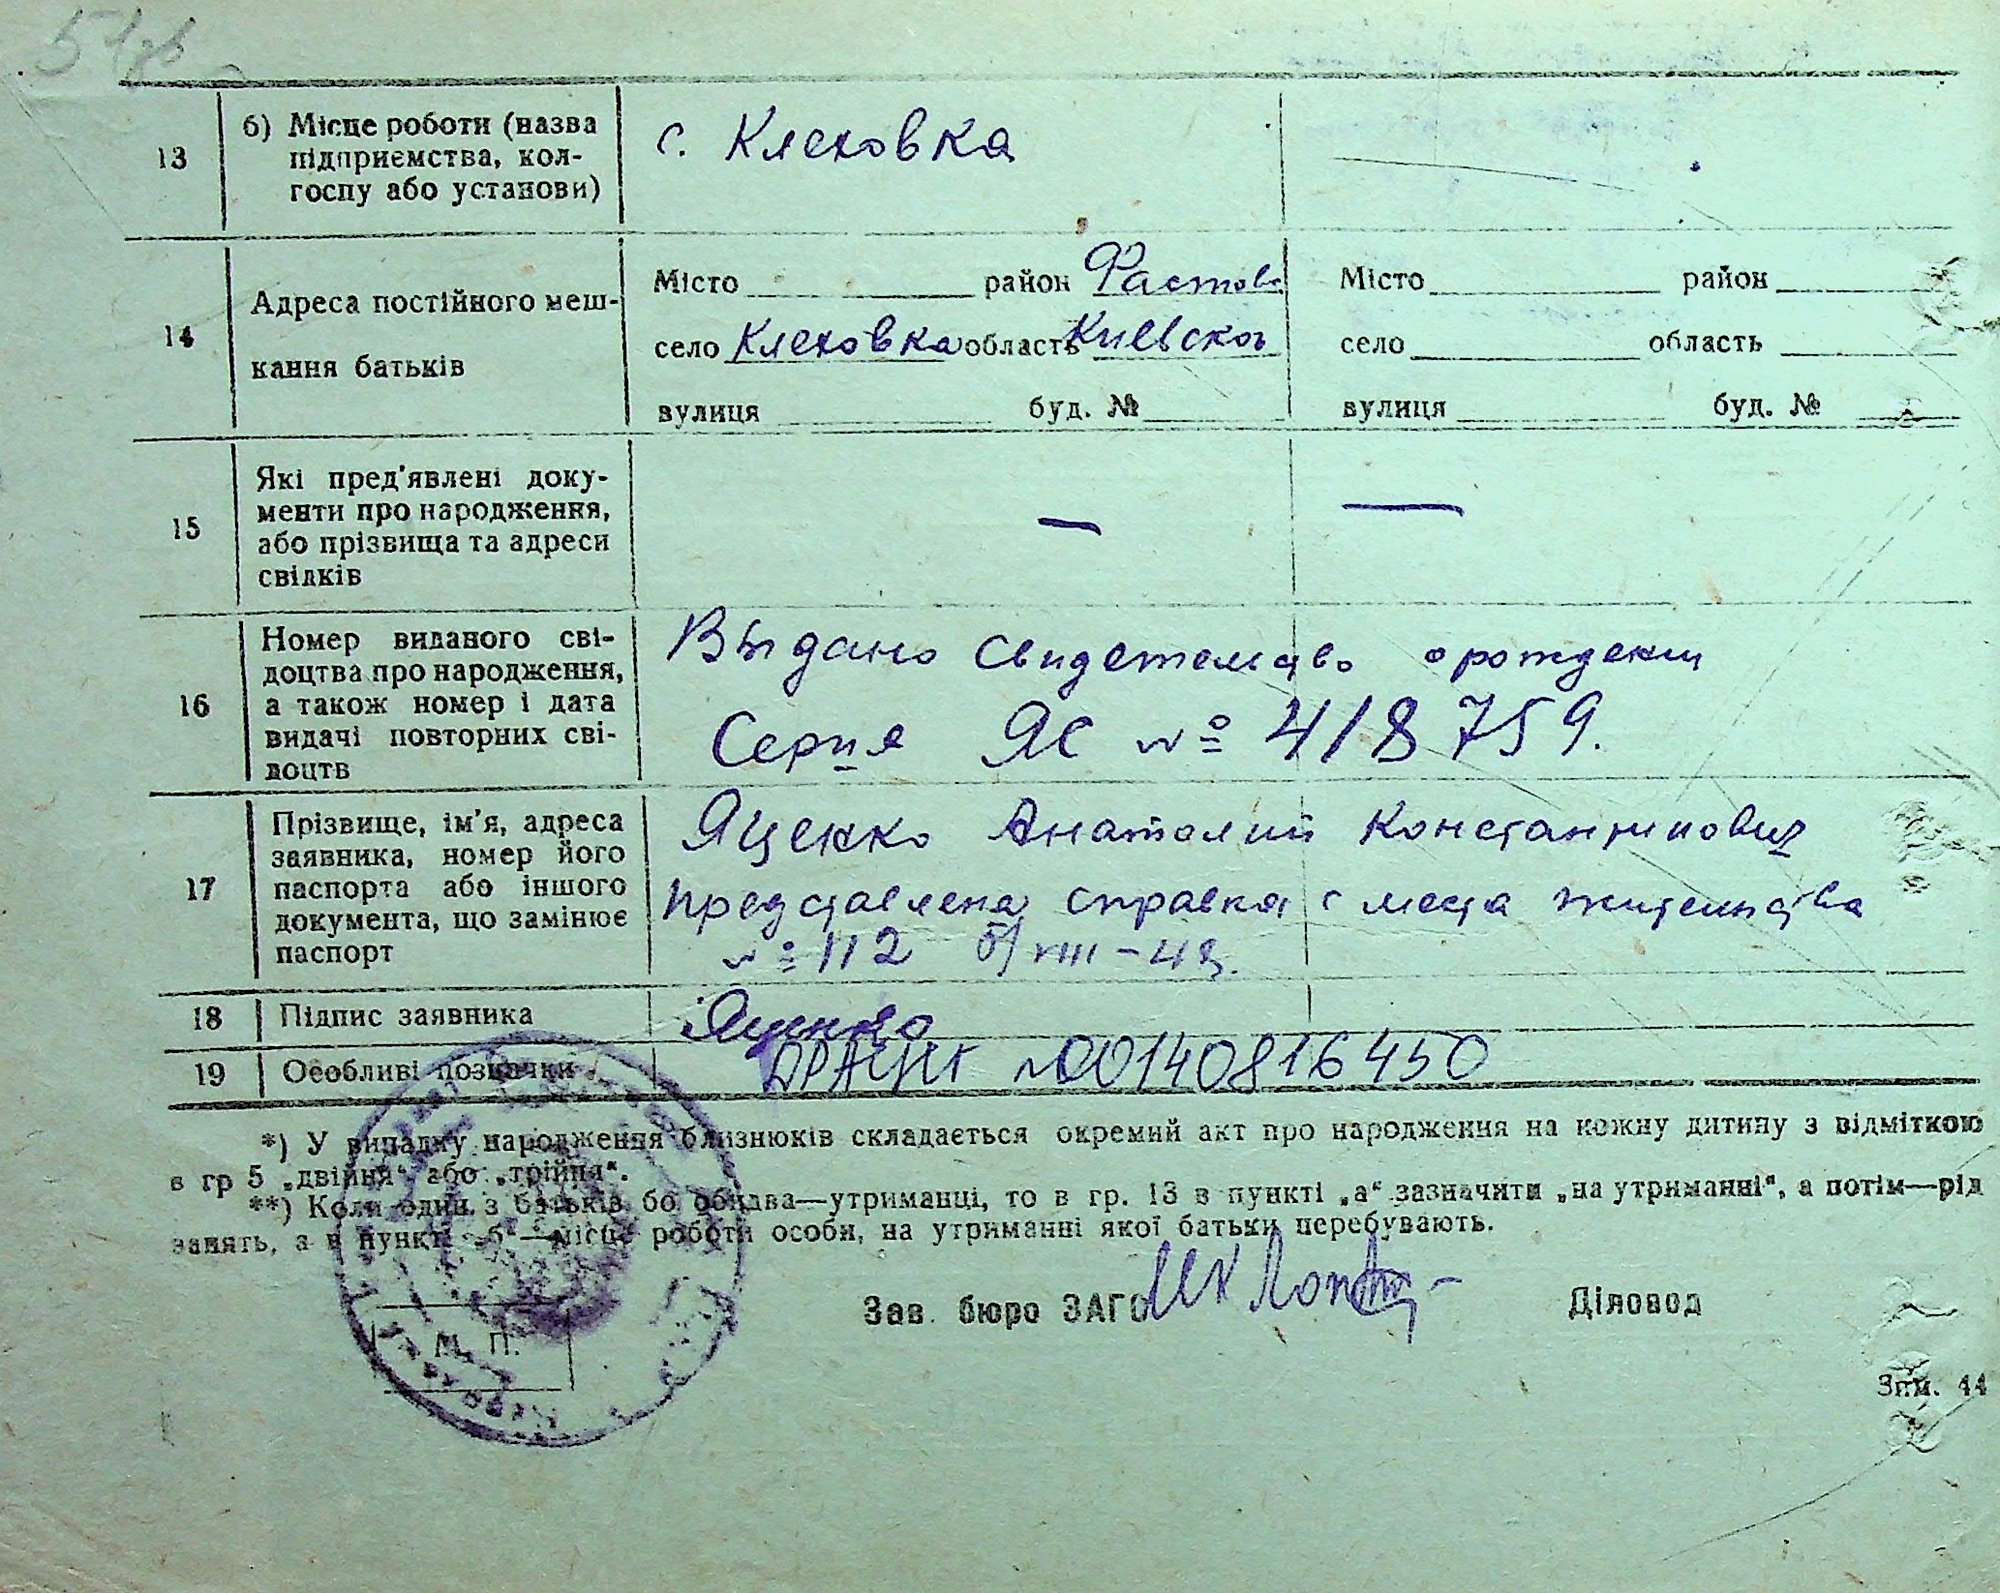 51зв
13
б) Місце роботи (назва
підприємства, кол-
госпу або установи)
с. Клеховка
14
Адреса постійного меш-
кання батьків
Місто район Фастовс
село Клеховка область Киевской
вулиця буд. №
Місто район
село область
вулиця буд. №
15
Які пред'явлені доку-
менти про народження,
або прізвища та адреси
свідків
—
—
16
Номер виданого сві-
доцтва про народження,
а також номер і дата
видачі повторних сві-
доцтв
Выдано свидетельство о рождении
Серия ЯС № 418759.
17
Прізвище, ім'я, адреса
заявника, номер його
паспорта або іншого
документа, що замінює
паспорт
Яценко Анатолий Константинович
представлена справка с места жительства
№ 112 5/VIII-49.
18
Підпис заявника
Яценко
19
Особливі позначки
ДРАЦГ №00140816450
*) У випадку народження близнюків складається окремий акт про народження на кожну дитину з відміткою
в гр 5 „двійня" або „трійня".
**) Коли один з батьків бо обидва—утриманці, то в гр. 13 в пункті „а" зазначити „на утриманні", а потім—рід
занять, а в пункті „б"—місце роботи особи, на утриманні якої батьки перебувають.
Зав. бюро ЗАГС
Діловод
М. П.
Зам. 44